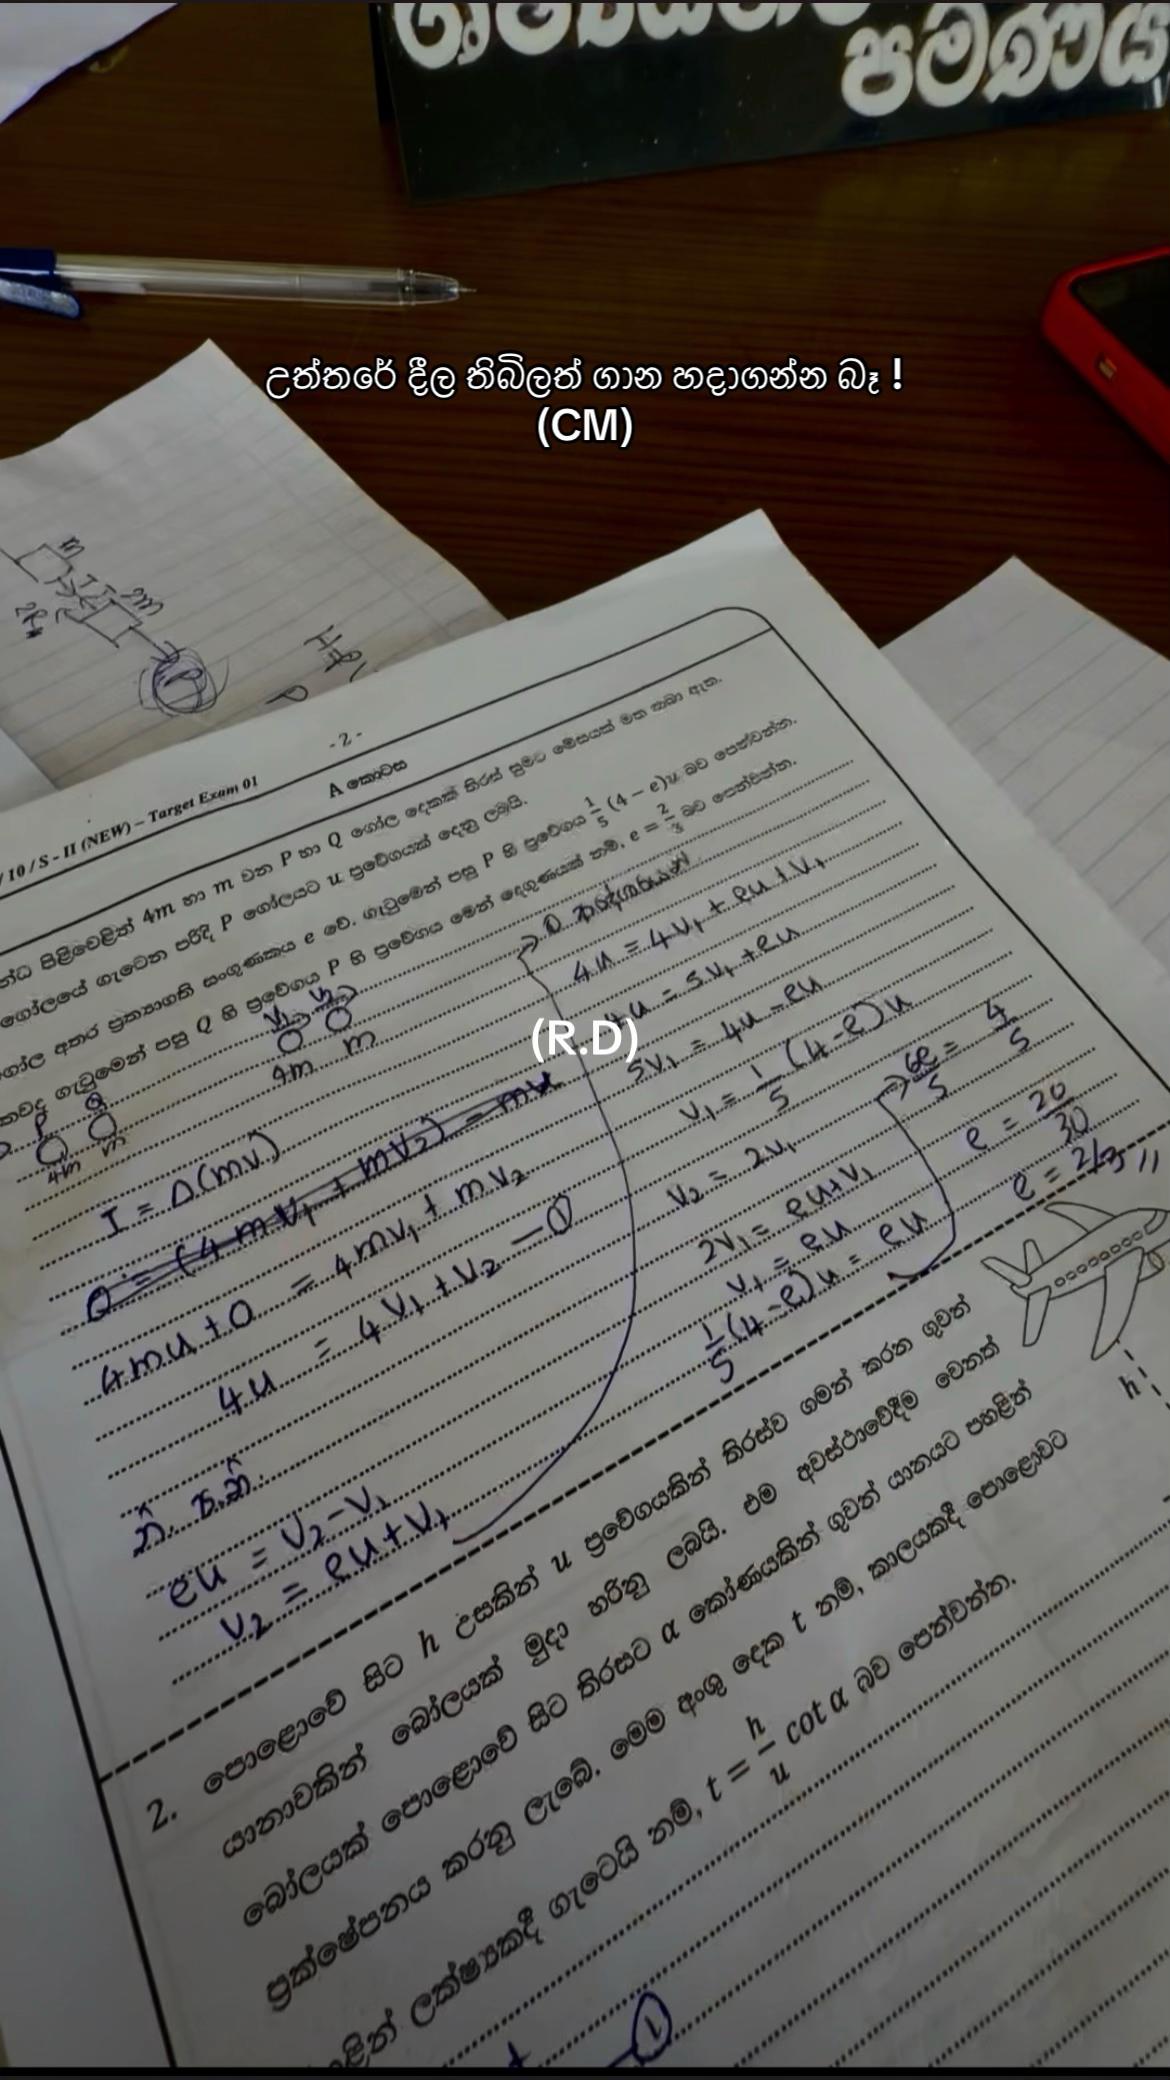 පමණයි
උත්තරේ දීල තිබිලත් ගාන හදාගන්න බෑ !
(CM)
m
2m
- 2 -
/ 10 / S - II (NEW) – Target Exam 01
A කොටස
පිළිවෙළින් 4m හා m වන P හා Q ගෝල දෙකක් තිරස් සුමට මේසයක් මත තබා ඇත.
ගෝලයේ ගැටෙන පරිදි P ගෝලයට u ප්‍රවේගයක් දෙනු ලබයි.
ගෝල අතර ප්‍රත්‍යාගති සංගුණකය e වේ. ගැටුමෙන් පසු P හි ප්‍රවේගය 1/5 (4 − e)u බව පෙන්වන්න.
තවද ගැටුමෙන් පසු Q හි ප්‍රවේගය P හි ප්‍රවේගය මෙන් දෙගුණයක් නම්, e = 2/3 බව පෙන්වන්න.
V1 V2
4m m
P Q
4m m
I = Δ(mv)
0 = (4mV1 + mV2) = mu
4mu + 0 = 4mv1 + mv2
4u = 4v1 + v2 — ①
eu = v2 - v1
v2 = eu + v1
4u = 4v1 + eu + v1
4u = 5v1 + eu
(R.D)
5v1 = 4u - eu
v1 = 1/5 (4-e)u
v2 = 2v1
2v1 = eu+v1
v1 = eu
1/5 (4-e)u = eu
6e/5 = 4/5
e = 20/30
e = 2/3 //
h
2. පොළොවේ සිට h උසකින් u ප්‍රවේගයකින් තිරස්ව ගමන් කරන ගුවන්
යානාවකින් බෝලයක් මුදා හරිනු ලබයි. එම අවස්ථාවේදීම වෙනත්
බෝලයක් පොළොවේ සිට තිරසට α කෝණයකින් ගුවන් යානයට පහළින්
ප්‍රක්ෂේපනය කරනු ලැබේ. මෙම අංශු දෙක t නම්, කාලයකදී පොළොවට
ළින් ලක්ෂ්‍යකදී ගැටෙයි නම්, t = h/u cot α බව පෙන්වන්න.